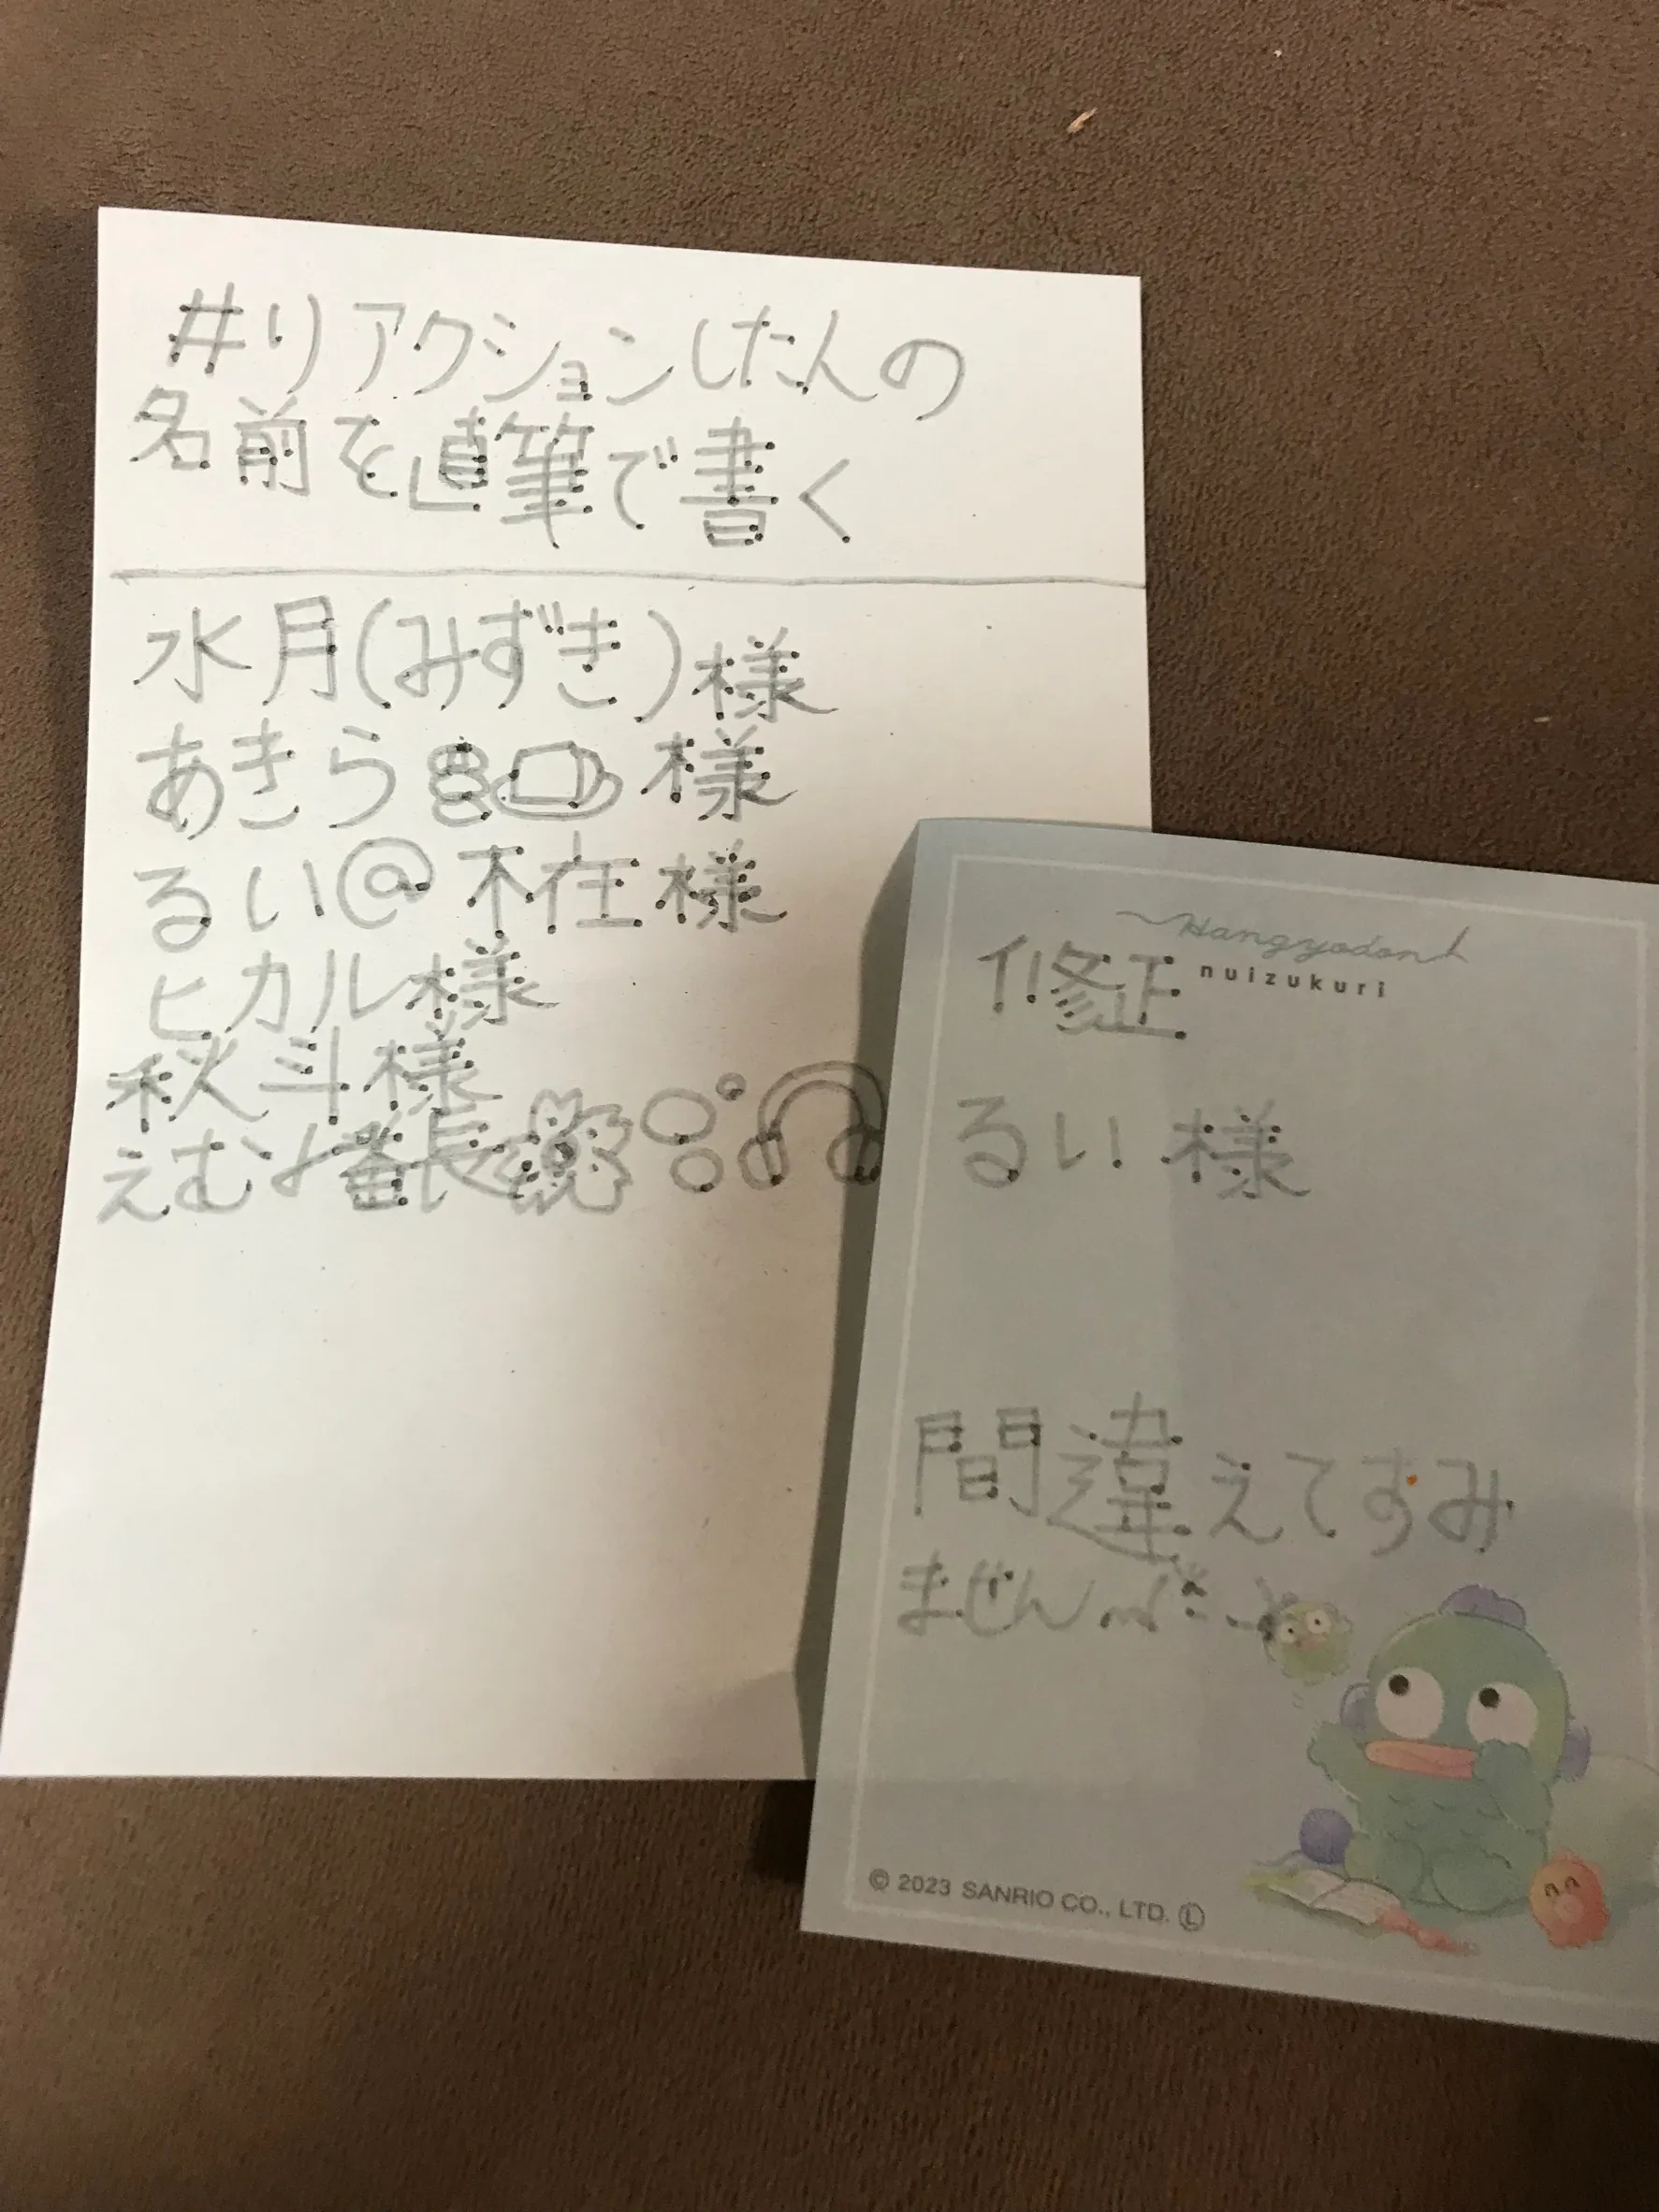 #リアクションした人の
名前を直筆で書く
水月(みずき)様
あきら 様
るい@不在様
ヒカル様
秋斗様
えむ 番長
Hangyodon
nuizukuri
修正
るい様
間違えてすみ
ません
© 2023 SANRIO CO., LTD. Ⓛ